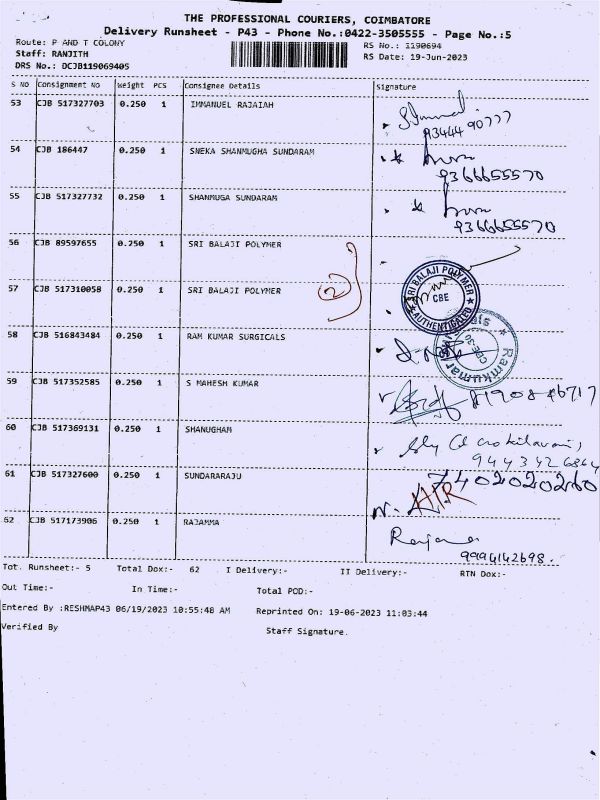 THE PROFESSIONAL COURIERS, COIMBATORE
Delivery Runsheet - P43 - Phone No.:0422-3505555 - Page No.:5
Route: P AND T COLONY
RS No.: 1190694
Staff: RANJITH
RS Date: 19-Jun-2023
DRS No.: DCJB119069405
S NO Consignment NO Weight PCS Consignee Details Signature
53 CJB 517327703 0.250 1 IMMANUEL RAJAIAH
9344490777
54 CJB 186447 0.250 1 SNEKA SHANMUGHA SUNDARAM
9366655570
55 CJB 517327732 0.250 1 SHANMUGA SUNDARAM
9366655570
56 CJB 89597655 0.250 1 SRI BALAJI POLYMER
57 CJB 517310058 0.250 1 SRI BALAJI POLYMER
2
SRI BALAJI POLYMER
CBE
AUTHENTICATED
58 CJB 516843484 0.250 1 RAM KUMAR SURGICALS
Ramkumar
59 CJB 517352585 0.250 1 S MAHESH KUMAR
8190846717
60 CJB 517369131 0.250 1 SHANUGHAM
9443426864
61 CJB 517327600 0.250 1 SUNDARARAJU
7402020260
AIR
62 CJB 517173906 0.250 1 RAJAMMA
9994142698.
Tot. Runsheet:- 5 Total Dox:- 62 I Delivery:- II Delivery:- RTN Dox:-
Out Time:- In Time:- Total POD:-
Entered By :RESHMAP43 06/19/2023 10:55:48 AM Reprinted On: 19-06-2023 11:03:44
Verified By Staff Signature.